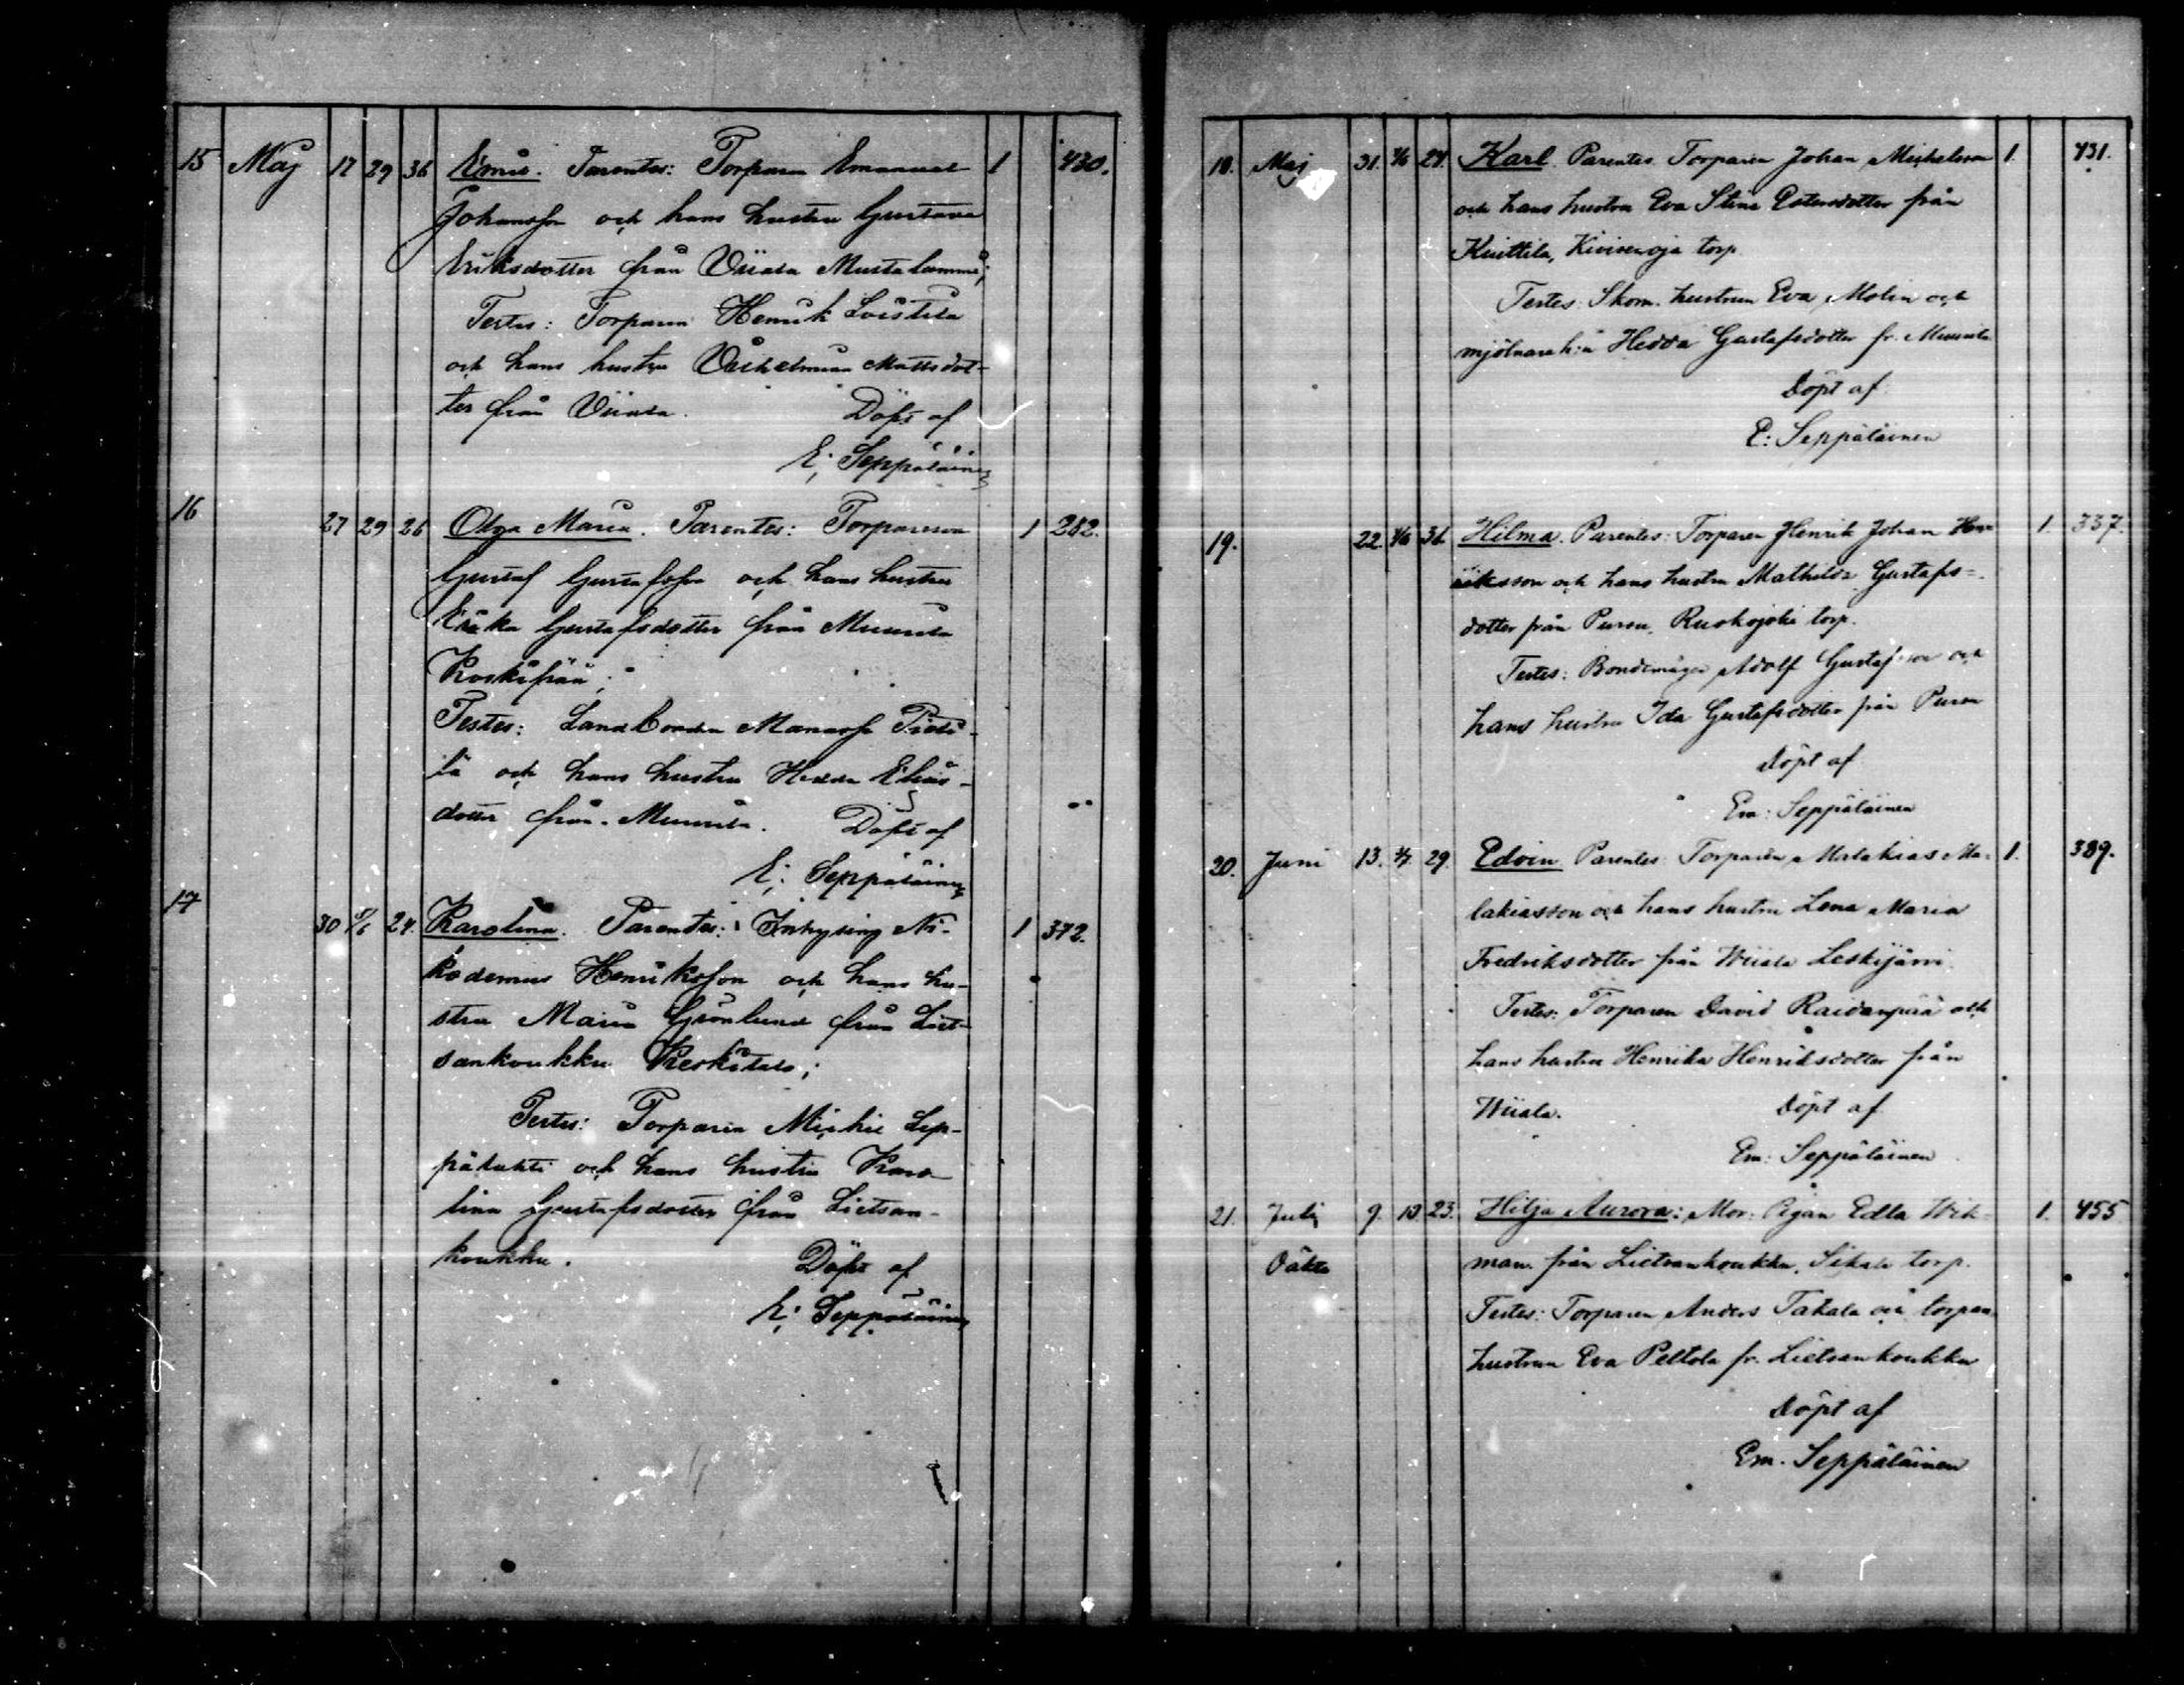 15 Maj 17 29 36 Emil. Parentes: Torparen Emanuel 1 430.
Johansson och hans hustru Gustava
Eriksdotter från Viiala Mustalammi;
Testes: Torparen Henrik Loistila
och hans hustru Vilhelmina Mattsdot-
ter från Viiala. Döpt af
E: Seppäläinen
16 27 29 26 Olga Maria. Parentes: Torpareson 1 282.
Gustaf Gustafsson och hans hustru
Erika Gustafsdotter från Muurila
Koskipää;
Testes: Landbonden Manasse Pieti-
lä och hans hustru Hedda Elias-
dotter från Muurila. Döpt af
E: Seppäläinen
17 30 5/6 24. Karolina. Parentes: Inhysing Ni- 1 372.
kodemus Henriksson och hans hu-
stru Maria Grönlund från Liet-
sankoukku Keskitalo;
Testes: Torparen Michel Lep-
pälahti och hans hustru Karo-
lina Gustafsdotter från Lietsan-
koukku. Döpt af
E: Seppäläinen
18. Maj 31. 4/6 27. Karl. Parentes. Torparen Johan Michelsson 1. 431.
och hans hustru Eva Stina Estersdotter från
Knittilä, Kivisenoja torp.
Testes: Skom. hustrun Eva Molin och
mjölnare h:u Hedda Gustafsdotter fr. Muurila
Döpt af
E: Seppäläinen
19. 22. 4/6 31. Hilma. Parentes: Torparen Henrik Johan Hen- 1. 337.
riksson och hans hustru Mathilda Gustafs-
dotter från Pursu, Ruokojoki torp.
Testes: Bondemågen Adolf Gustafsson och
hans hustru Ida Gustafsdotter från Pursu
Döpt af
Em: Seppäläinen
20. Juni 13. 29. Edvin Parentes: Torparen Malakias Ma- 1. 389.
lakiasson och hans hustru Lena Maria
Fredriksdotter från Wiiala Leskijärvi.
Testes: Torparen David Raidanpää och
hans hustru Henrika Henriksdotter från
Wiiala. Döpt af
Em: Seppäläinen
21. Julij 9. 10 23. Hilja Aurora: Mor: Pigan Edla Wik- 1. 455
Oäkta man från Lietsankoukku, Sikala torp.
Testes: Torparen Anders Takala och torpare
hustrun Eva Peltola fr. Lietsankoukku
Döpt af
Em. Seppäläinen